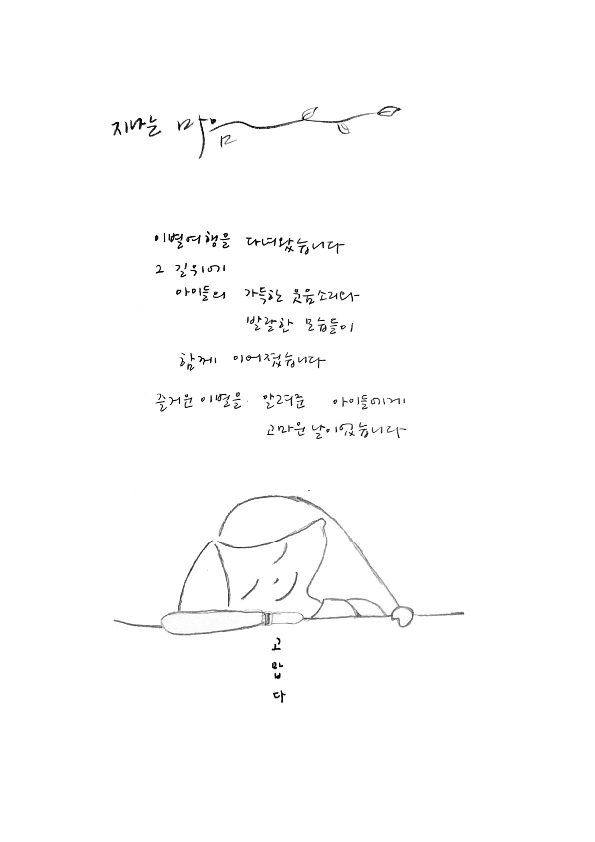 지나는 마음
이별여행을 다녀왔습니다
그 길위에
아이들의 가득한 웃음소리와
발랄한 모습들이
함께 이어졌습니다
즐거운 이별을 알려준 아이들에게
고마운 날이었습니다
고
맙
다